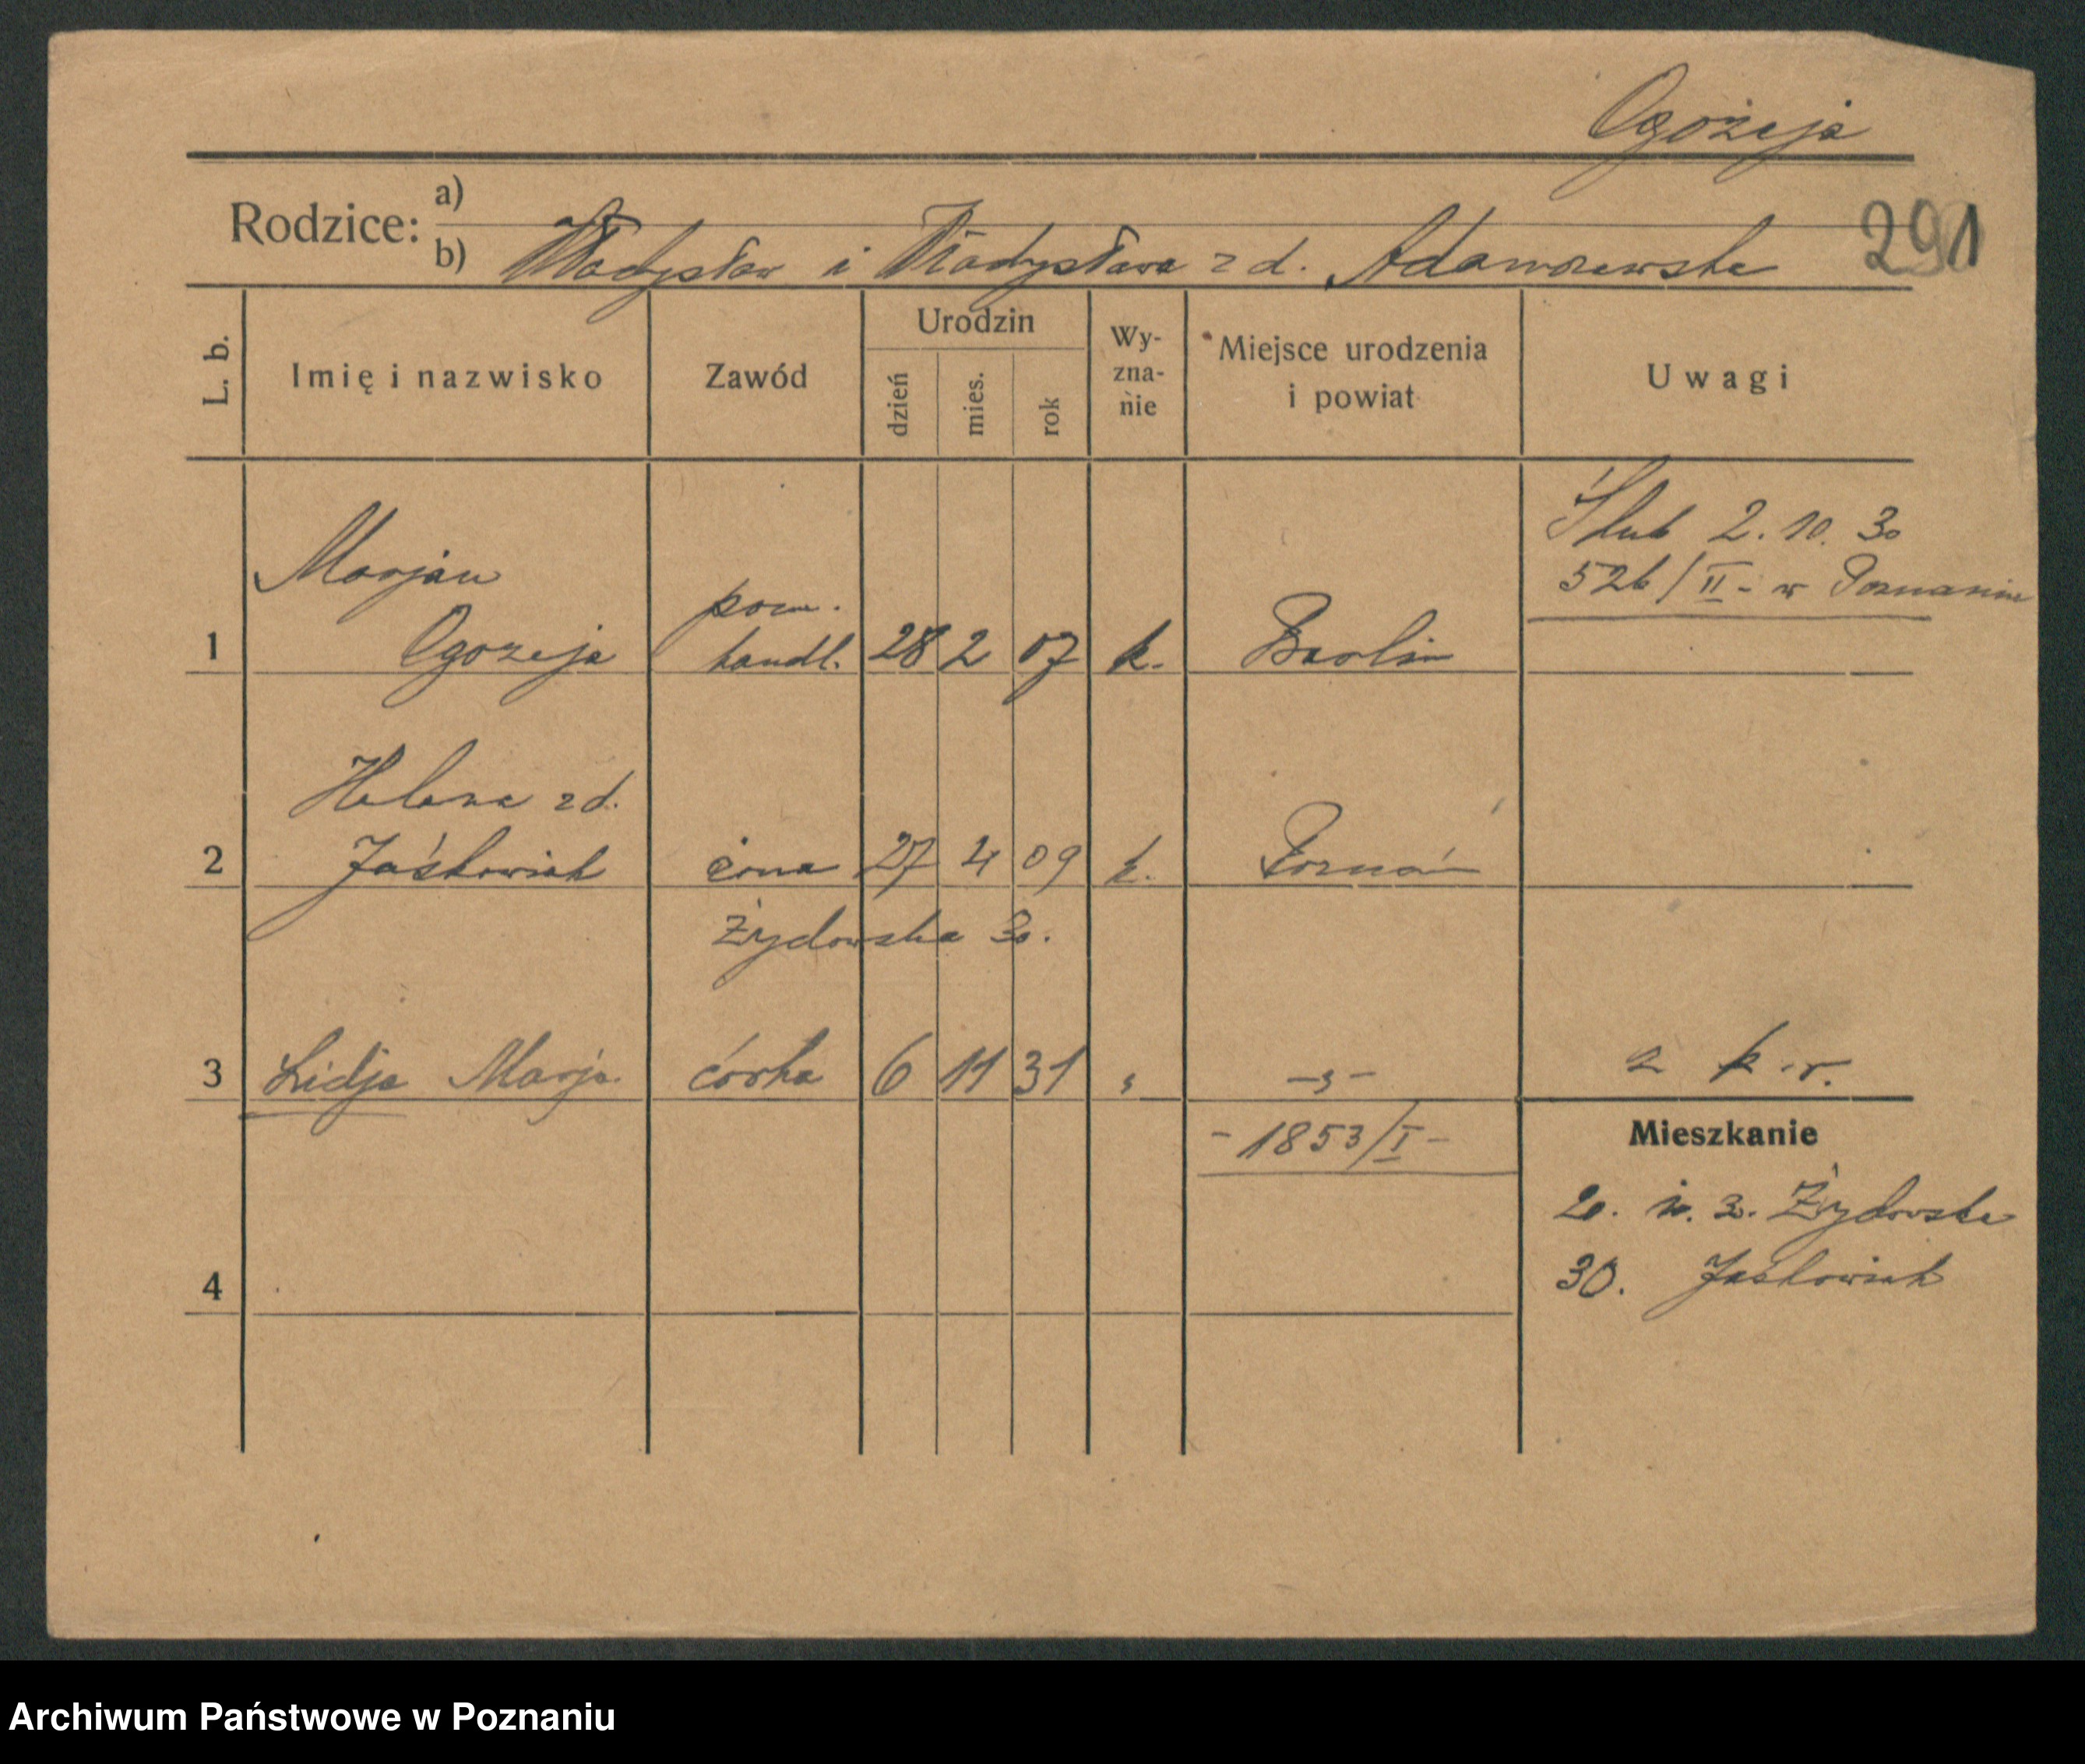 Ogożeja
Rodzice: a)
b) Władysław i Władysława z d. Adamczewska
291
L. b. Imię i nazwisko Zawód Urodzin dzień mies. rok Wyznanie Miejsce urodzenia i powiat Uwagi
Ślub 2. 10. 30
526/II - w Poznaniu
Marjan pom.
1 Ogozeja handl. 28 2 07 k. Berlin
Helena z d.
2 Jaśkowiak żona 27 4 09 k. Poznań
Żydowska 30.
3 Lidja Marja córka 6 11 31 " -"- 2 k.r.
- 1853/I -
Mieszkanie
Żydowska
4 30. Jaśkowiak
Archiwum Państwowe w Poznaniu